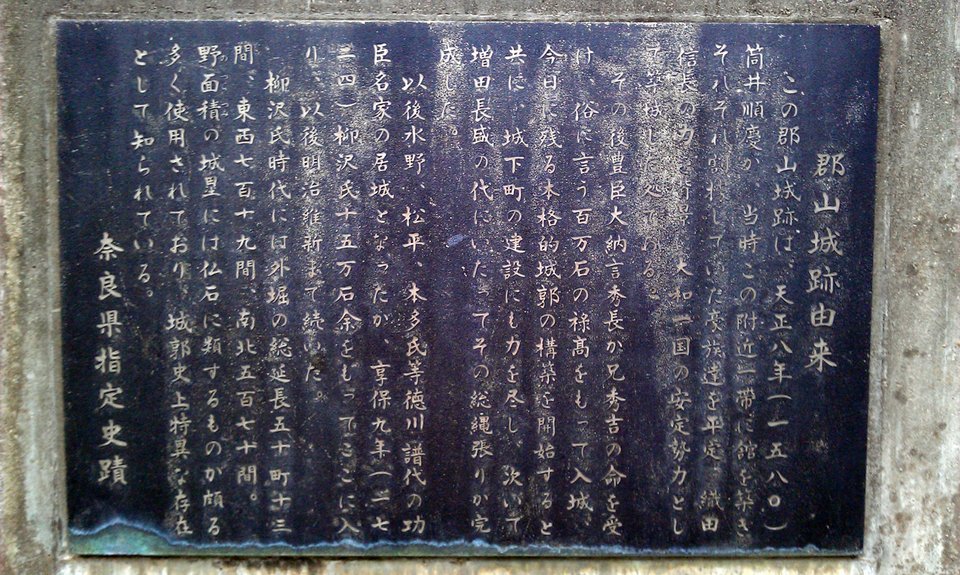 郡山城跡由来
この郡山城跡は、天正八年(一五八〇)
筒井順慶が 当時この附近一帯に舘を築き
それぞれ割拠していた豪族達を平定 織田
信長の力を背景に大和一国の安定勢力とし
て築城した処である。
その後豊臣大納言秀長が兄秀吉の命を受
け、俗に言う百万石の禄高をもって入城、
今日に残る本格的城郭の構築を開始すると
共に、城下町の建設にも力を尽し、次いで
増田長盛の代にいたってその総縄張りが完
成した。
以後水野、松平、本多氏等徳川譜代の功
臣名家の居城となったが、享保九年(一七
二四)柳沢氏十五万石余をもってここに入
り、以後明治維新まで続いた。
柳沢氏時代には外堀の総延長五十町十三
間、東西七百十九間、南北五百七十間。
野面積の城塁には仏石に類するものが頗る
多く使用されており、城郭史上特異な存在
として知られている。
奈良県指定史蹟